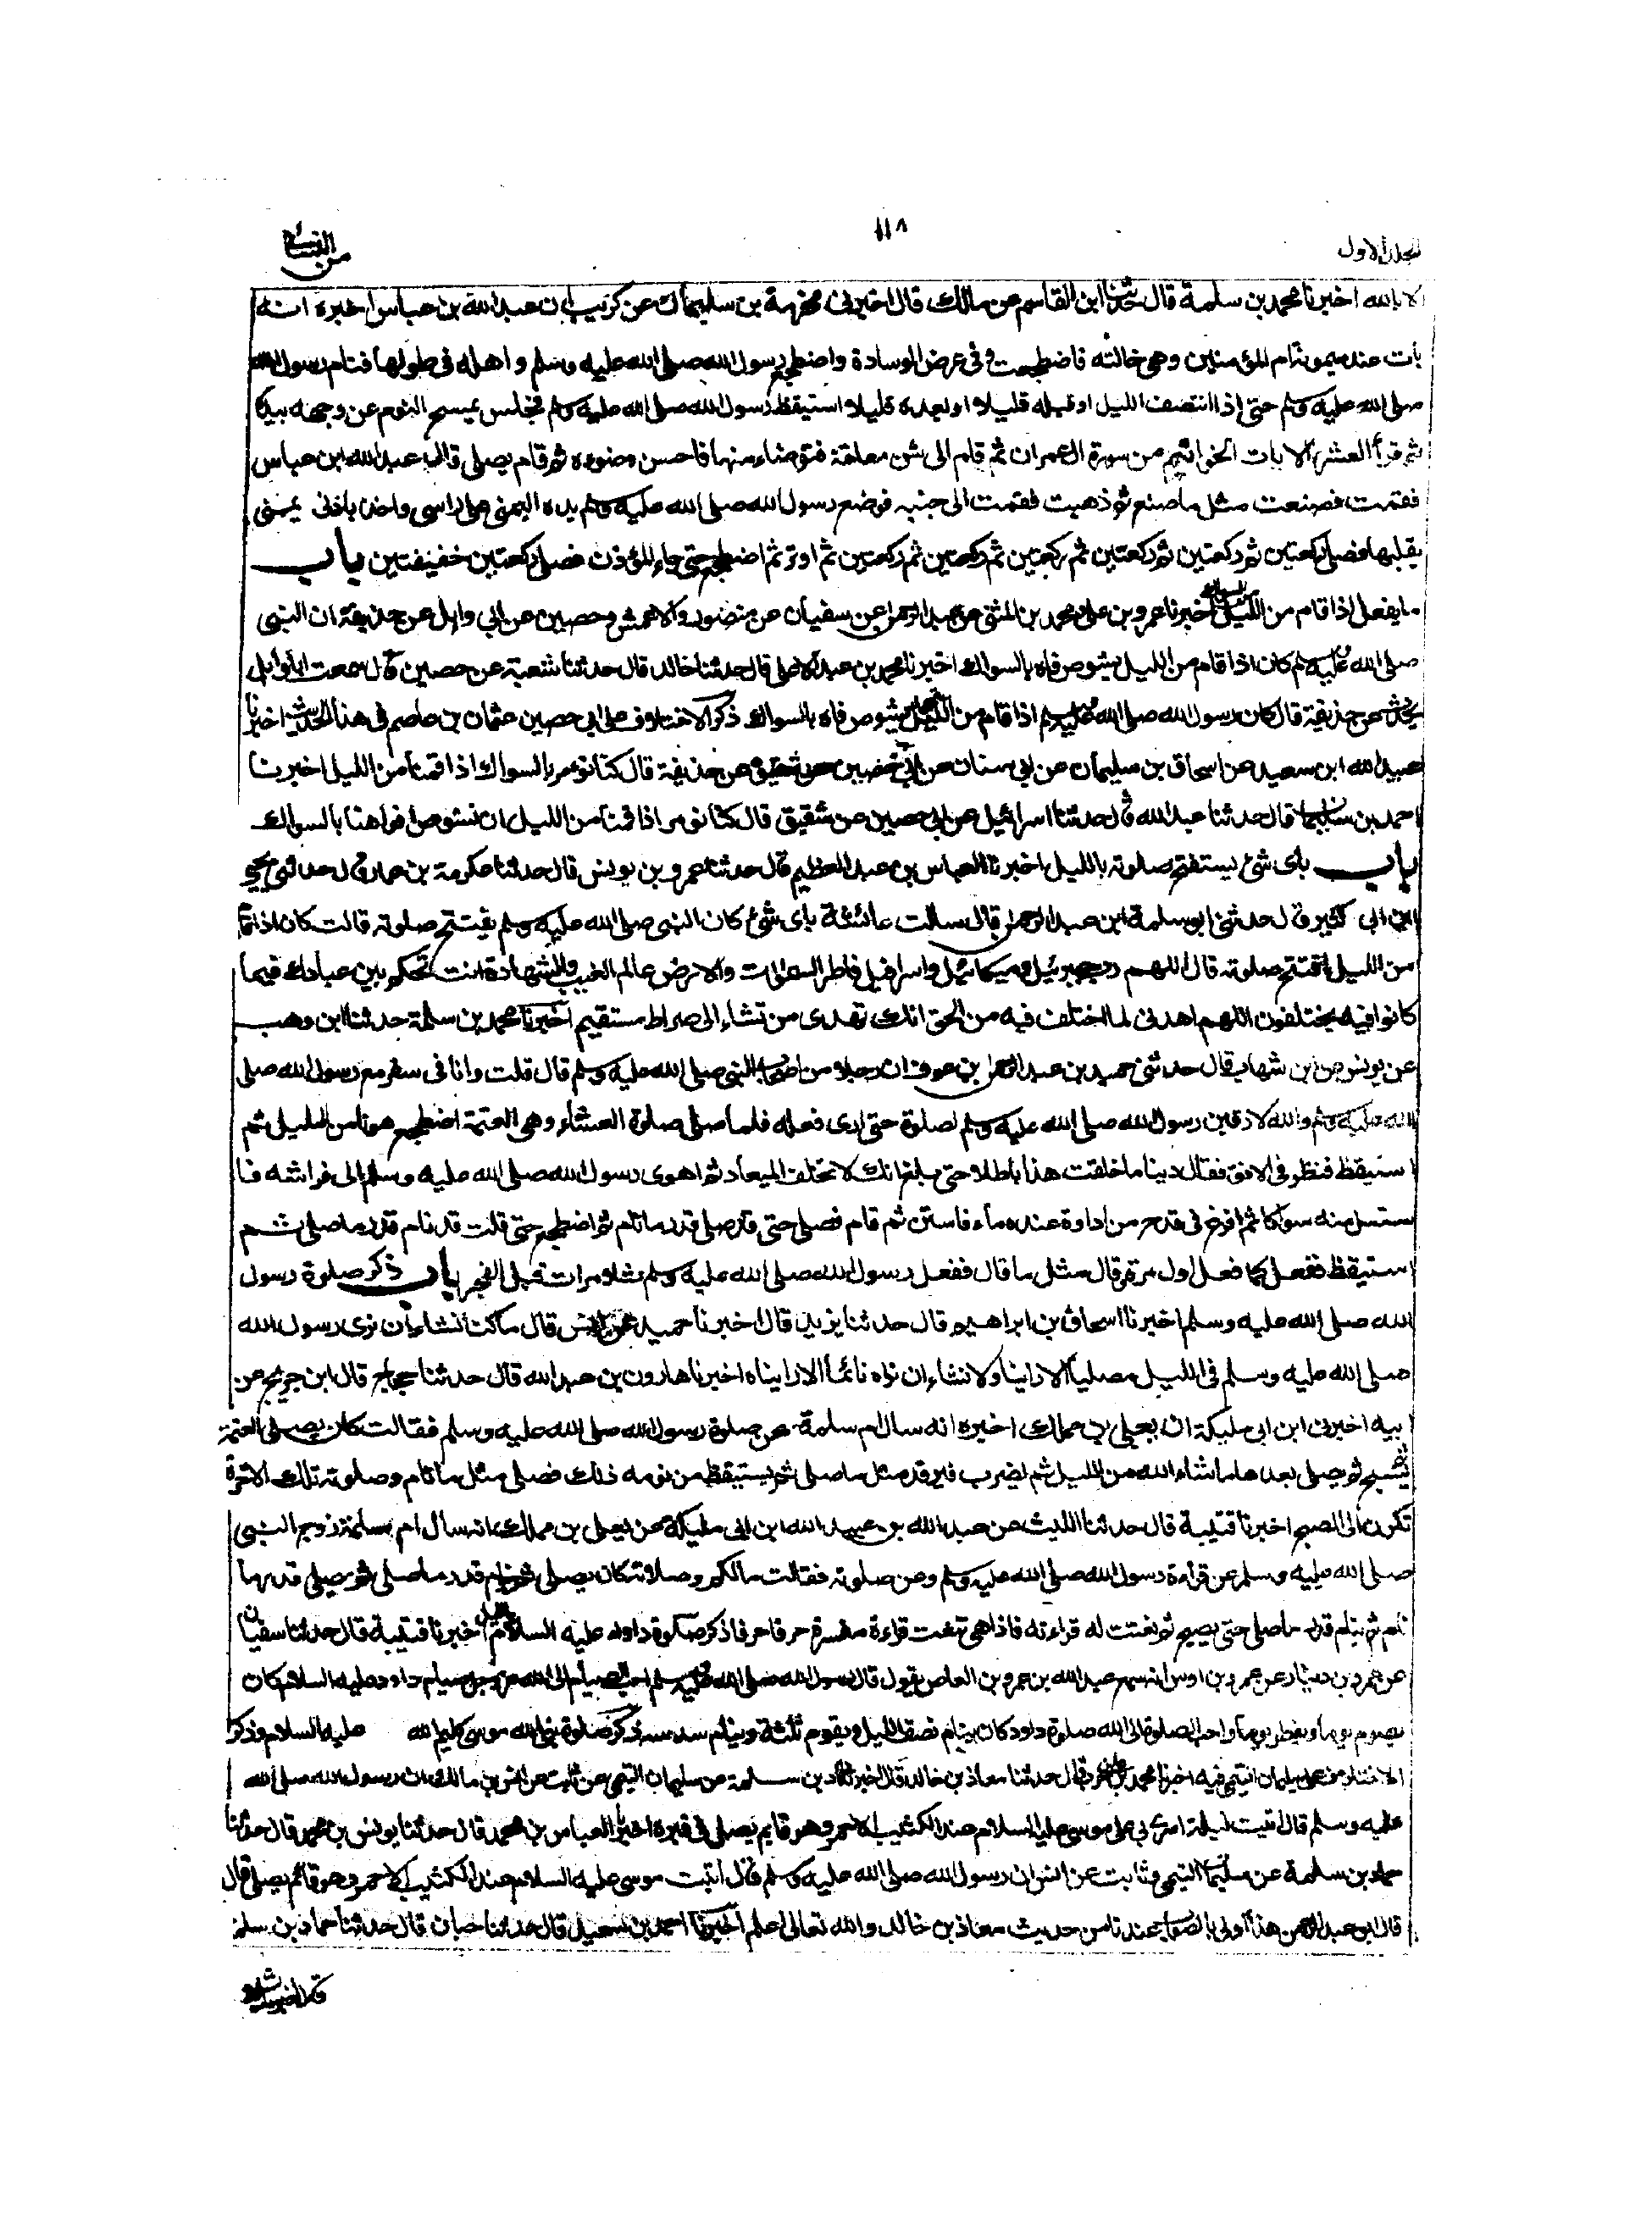 المجلد الاول
١١٨
من النسائی
الا بالله اخبرنا محمد بن سلمة قال حدثنا ابن القاسم عن مالك قال اخبرنی مخرمة بن سليمان عن كريب ان عبد الله بن عباس اخبره انه
بات عند ميمونة ام المؤمنين وهی خالته فاضطجعت فی عرض الوسادة واضطجع رسول الله صلی الله عليه وسلم و اهله فی طولها فنام رسول الله
صلی الله عليه وسلم حتی اذا انتصف الليل او قبله قليلا او بعده قليلا استيقظ رسول الله صلی الله عليه وسلم فجلس يمسح النوم عن وجهه بيده
ثم قرأ العشر الايات الخواتيم من سورة ال عمران ثم قام الی شن معلقة فتوضاء منها فاحسن وضوءه ثم قام يصلی قال عبد الله ابن عباس
فقمت فصنعت مثل ما صنع ثم ذهبت فقمت الی جنبه فوضع رسول الله صلی الله عليه وسلم يده اليمنی علی راسی واخذ باذنی يمنی
يفتلها فصلی ركعتين ثم ركعتين ثم ركعتين ثم ركعتين ثم ركعتين ثم ركعتين ثم اوتر ثم اضطجع حتی جاء المؤذن فصلی ركعتين خفيفتين باب
ما يفعل اذا قام من الليل اخبرنا عمرو بن علی ومحمد بن المثنی عن عبد الرحمن عن سفيان عن منصور والاعمش وحصين عن ابی وايل عن حذيفة ان النبی
صلی الله عليه وسلم كان اذا قام من الليل يشوص فاه بالسواك اخبرنا محمد بن عبد الاعلی قال حدثنا خالد قال حدثنا شعبة عن حصين قال سمعت ابا وايل
يحدث عن حذيفة قال كان رسول الله صلی الله عليه وسلم اذا قام من الليل يشوص فاه بالسواك ذكر الاختلاف علی ابی حصين عثمان بن عاصم فی هذا الحديث اخبرنا
عبيد الله ابن سعيد عن اسحاق بن سليمان عن ابی سنان عن ابی حصين عن شقيق عن حذيفة قال كنا نؤمر بالسواك اذا قمنا من الليل اخبرنا
احمد بن سليمان قال حدثنا عبيد الله قال حدثنا اسرائيل عن ابی حصين عن شقيق قال كنا نؤمر اذا قمنا من الليل ان نشوص افواهنا بالسواك
باب بای شیء يستفتح صلوته بالليل اخبرنا العباس بن عبد العظيم قال حدثنا عمرو بن يونس قال حدثنا عكرمة بن عمار قال حدثنی يحيی
ابن ابی كثير قال حدثنی ابو سلمة ابن عبد الرحمن قال سالت عائشة بای شیء كان النبی صلی الله عليه وسلم يفتتح صلوته قالت كان اذا قام
من الليل افتتح صلوته قال اللهم رب جبرئيل وميكائيل واسرافيل فاطر السموات والارض عالم الغيب والشهادة انت تحكم بين عبادك فيما
كانوا فيه يختلفون اللهم اهدنی لما اختلف فيه من الحق انك تهدی من تشاء الی صراط مستقيم اخبرنا محمد بن سلمة حدثنا ابن وهب
عن يونس عن ابن شهاب قال حدثنی حميد بن عبد الرحمن بن عوف ان رجلا من اصحاب النبی صلی الله عليه وسلم قال قلت وانا فی سفر مع رسول الله صلی
الله عليه وسلم والله لارقبن رسول الله صلی الله عليه وسلم لصلوة حتی اری فعله فلما صلی صلوة العشاء وهی العتمة اضطجع هويا من الليل ثم
استيقظ فنظر فی الافق فقال ربنا ما خلقت هذا باطلا حتی بلغ انك لا تخلف الميعاد ثم اهوی رسول الله صلی الله عليه وسلم الی فراشه فا
ستسل منه سواكا ثم افرغ فی قدح من اداوة عنده ماء فاستن ثم قام فصلی حتی قلت صلی قدر ما نام ثم اضطجع حتی قلت قد نام قدر ما صلی ثم
استيقظ ففعل كما فعل اول مرة وقال مثل ما قال ففعل رسول الله صلی الله عليه وسلم ثلاث مرات قبل الفجر باب ذكر صلوة رسول
الله صلی الله عليه وسلم اخبرنا اسحاق بن ابراهيم قال حدثنا يزيد قال اخبرنا حميد عن انس قال ما كنا نشاء ان نری رسول الله
صلی الله عليه وسلم فی الليل مصليا الا راينا ولا نشاء ان نراه نائما الا رايناه اخبرنا هارون بن عبد الله قال حدثنا حجاج قال ابن جريج عن
ابيه اخبرنی ابن ابی مليكة ان يعلی بن مملك اخبره انه سال ام سلمة عن صلوة رسول الله صلی الله عليه وسلم فقالت كان يصلی العتمة
ثم يسبح ثم يصلی بعدها ما شاء الله من الليل ثم ينصرف فيرقد مثل ما صلی ثم يستيقظ من نومه ذلك فصلی مثل ما نام وصلوته تلك الاخرة
تكون الی الصبح اخبرنا قتيبة قال حدثنا الليث عن عبد الله بن عبيد الله ابن ابی مليكة عن يعلی بن مملك انه سال ام سلمة زوج النبی
صلی الله عليه وسلم عن قراءة رسول الله صلی الله عليه وسلم وعن صلوته فقالت مالكم وصلاته كان يصلی ثم ينام قدر ما صلی ثم يصلی قدر ما
نام ثم ينام قدر ما صلی حتی يصبح ثم نعتت له قراءته فاذا هی تنعت قراءة مفسرة حرفا حرفا ذكر صلوة داود عليه السلام بالليل اخبرنا قتيبة قال حدثنا سفيان
عن عمرو بن دينار عن عمرو بن اوس انه سمع عبد الله بن عمرو بن العاص يقول قال رسول الله صلی الله عليه وسلم احب الصيام الی الله عز وجل صيام داود عليه السلام كان
يصوم يوما ويفطر يوما واحب الصلوة الی الله صلوة داود كان ينام نصف الليل ويقوم ثلثه وينام سدسه ذكر صلوة نبی الله موسی كليم الله عليه السلام وذكر
الاختلاف علی سليمان التيمی فيه اخبرنا محمد بن علی بن حرب قال حدثنا معاذ بن خالد قال اخبرنا حماد بن سلمة عن سليمان التيمی عن ثابت عن انس بن مالك ان رسول الله صلی الله
عليه وسلم قال اتيت ليلة اسری بی علی موسی عليه السلام عند الكثيب الاحمر وهو قايم يصلی فی قبره اخبرنا العباس بن محمد قال حدثنا يونس بن محمد قال حدثنا
حماد بن سلمة عن سليمان التيمی وثابت عن انس ان رسول الله صلی الله عليه وسلم قال اتيت موسی عليه السلام عند الكثيب الاحمر وهو قائم يصلی قال
قال ابو عبد الرحمن هذا اولی بالصواب عندنا من حديث معاذ بن خالد والله تعالی اعلم اخبرنا احمد بن سعيد قال حدثنا حبان قال حدثنا حماد بن سلمة